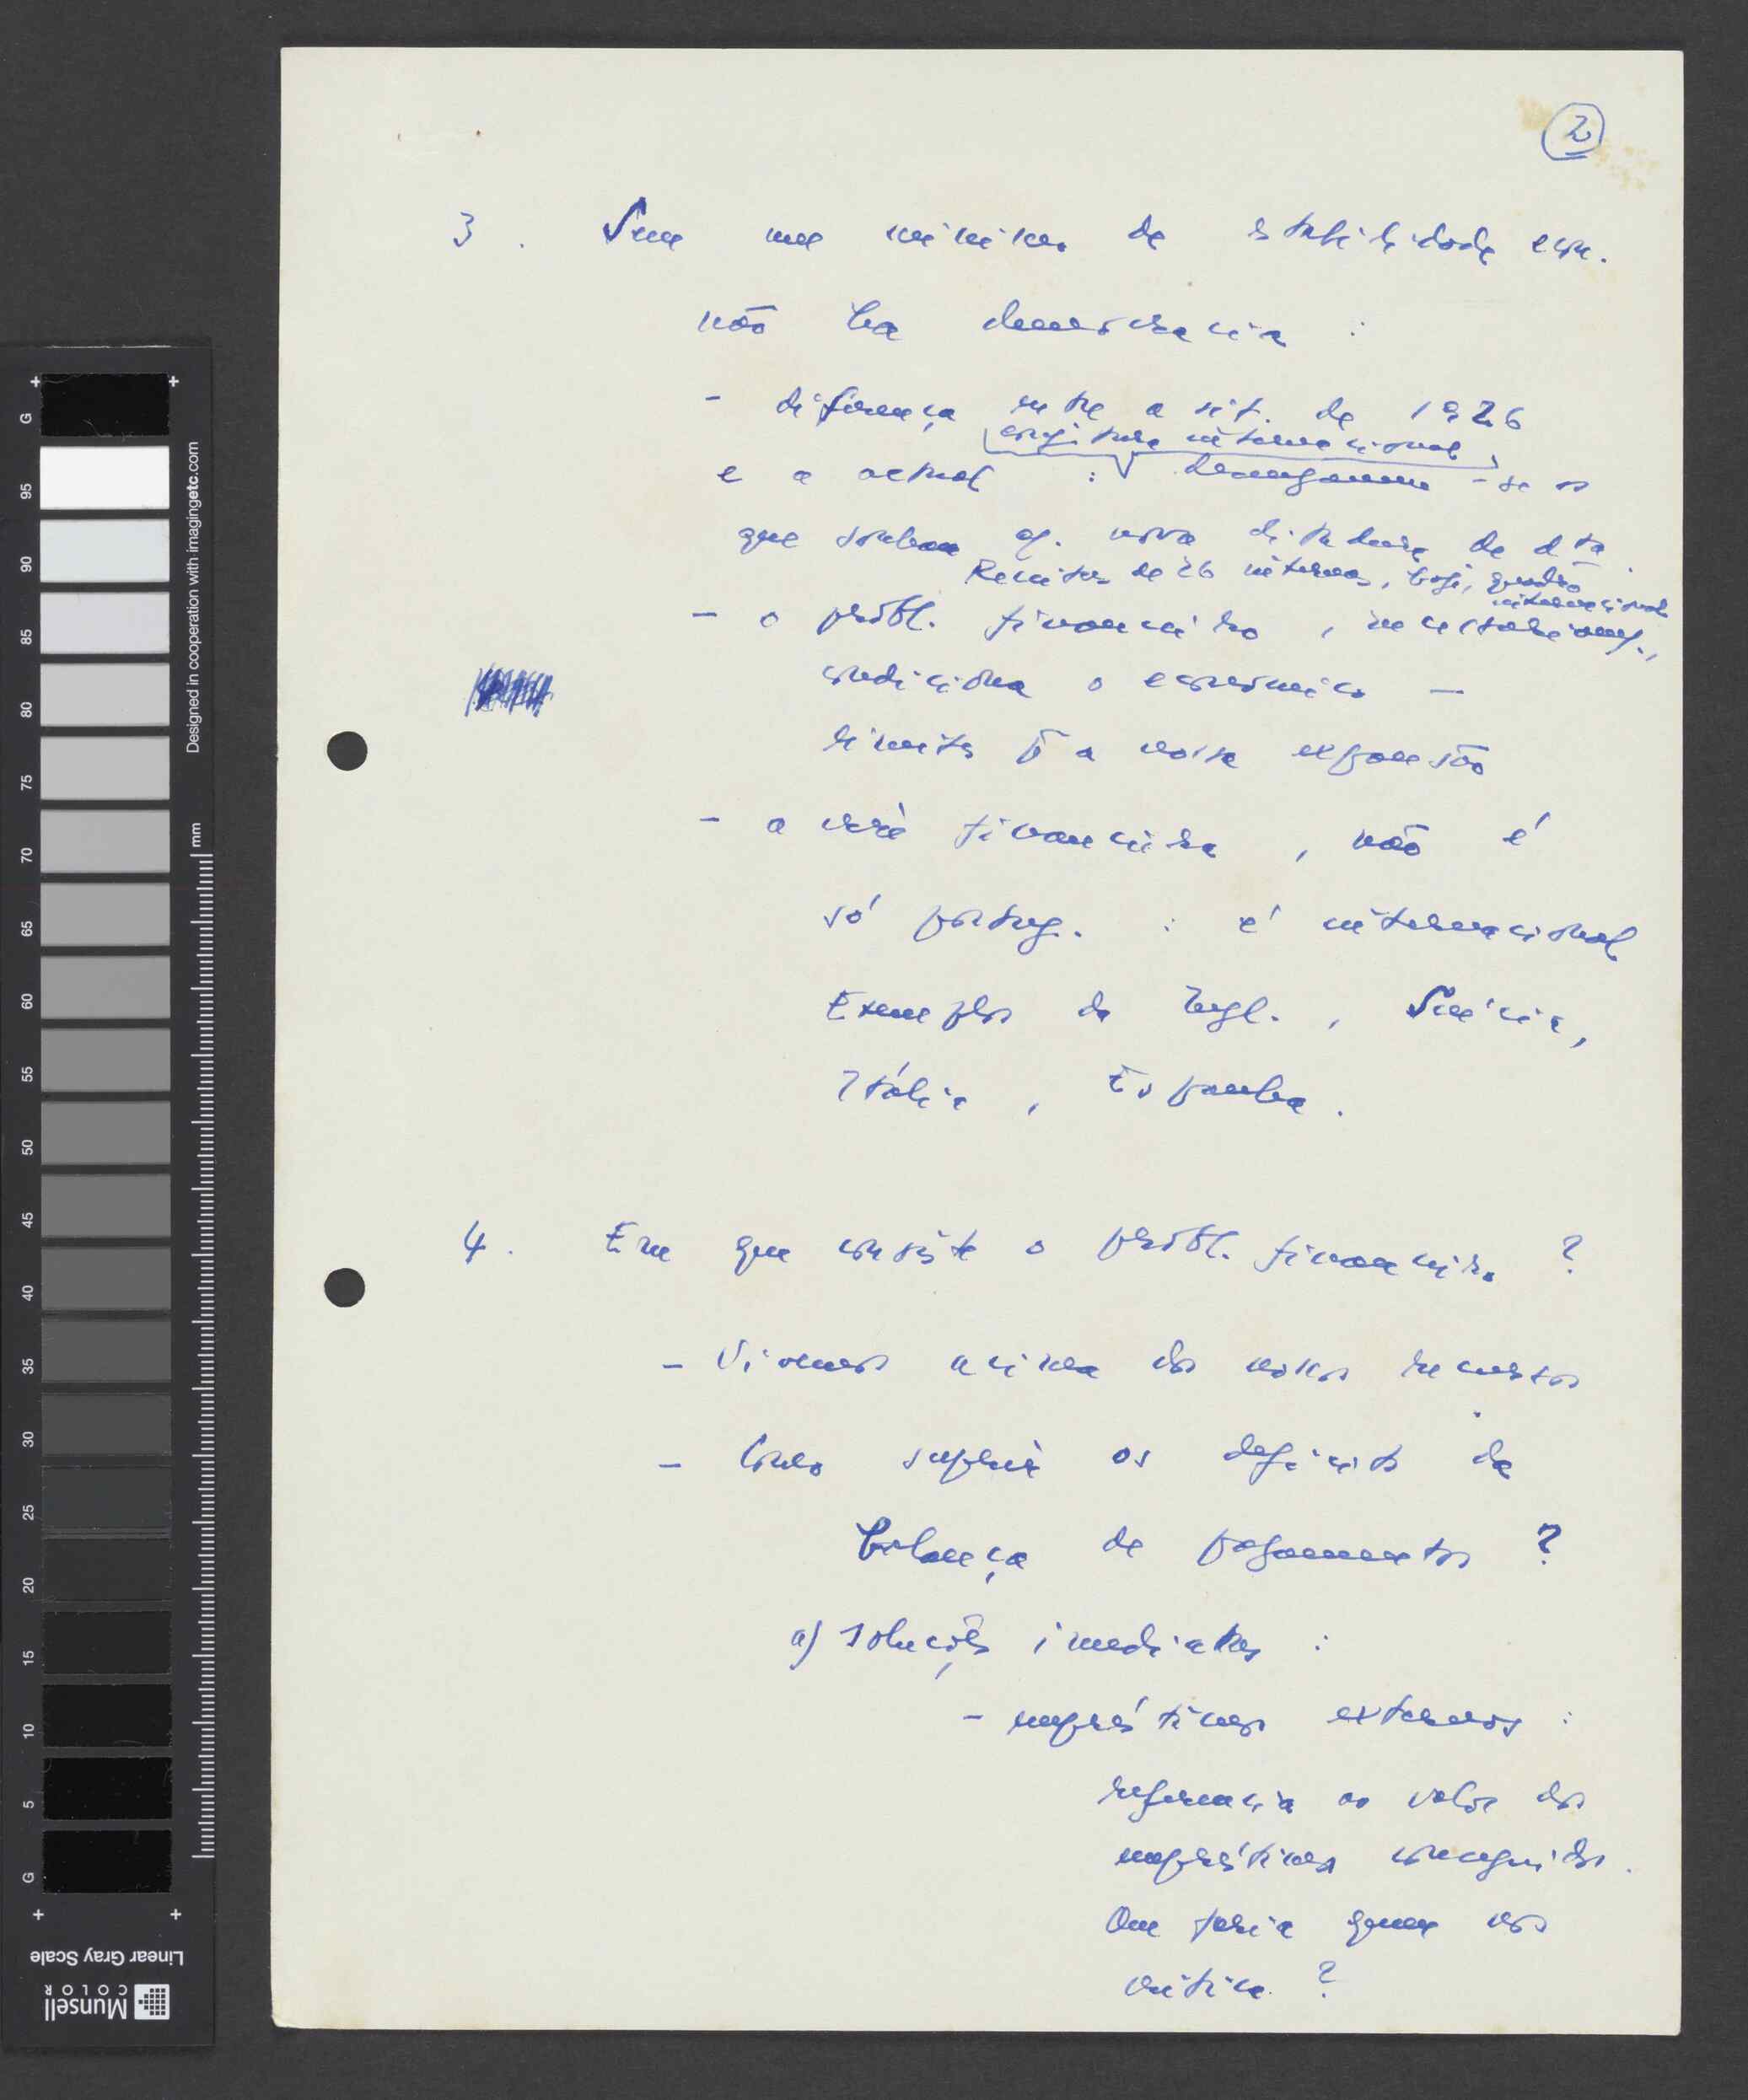 2
3. Sem um mínimo de estabilidade econ.
não ha democracia :
- diferença entre a sit. de 1926
conjuntura internacional
e a actual : desenganem-se os
que sonham c/. nova ditadura de dta.
Receitas de 26 internas, hoje, quadro
internacional
- o probl. financeiro, necessariam.,
condiciona o económico -
limites p a nossa expansão
- a crise financeira, não é
só portug. : é internacional
Exemplos da Ingl., Suécia,
Itália, Espanha.
4. Em que consiste o probl. financeiro ?
- Vivemos acima dos nossos recursos
- Como suprir os deficits da
balança de pagamentos ?
a) soluções imediatas :
- empréstimos externos :
referencia ao valor dos
empréstimos conseguidos.
Que faria quem nos
critica ?
Designed in cooperation with imagingetc.com
mm
G 95 90 85 80 75 70 65 60 55 50 45 40 35 30 25 20 15 10 5 G
Linear Gray Scale
Munsell
COLOR